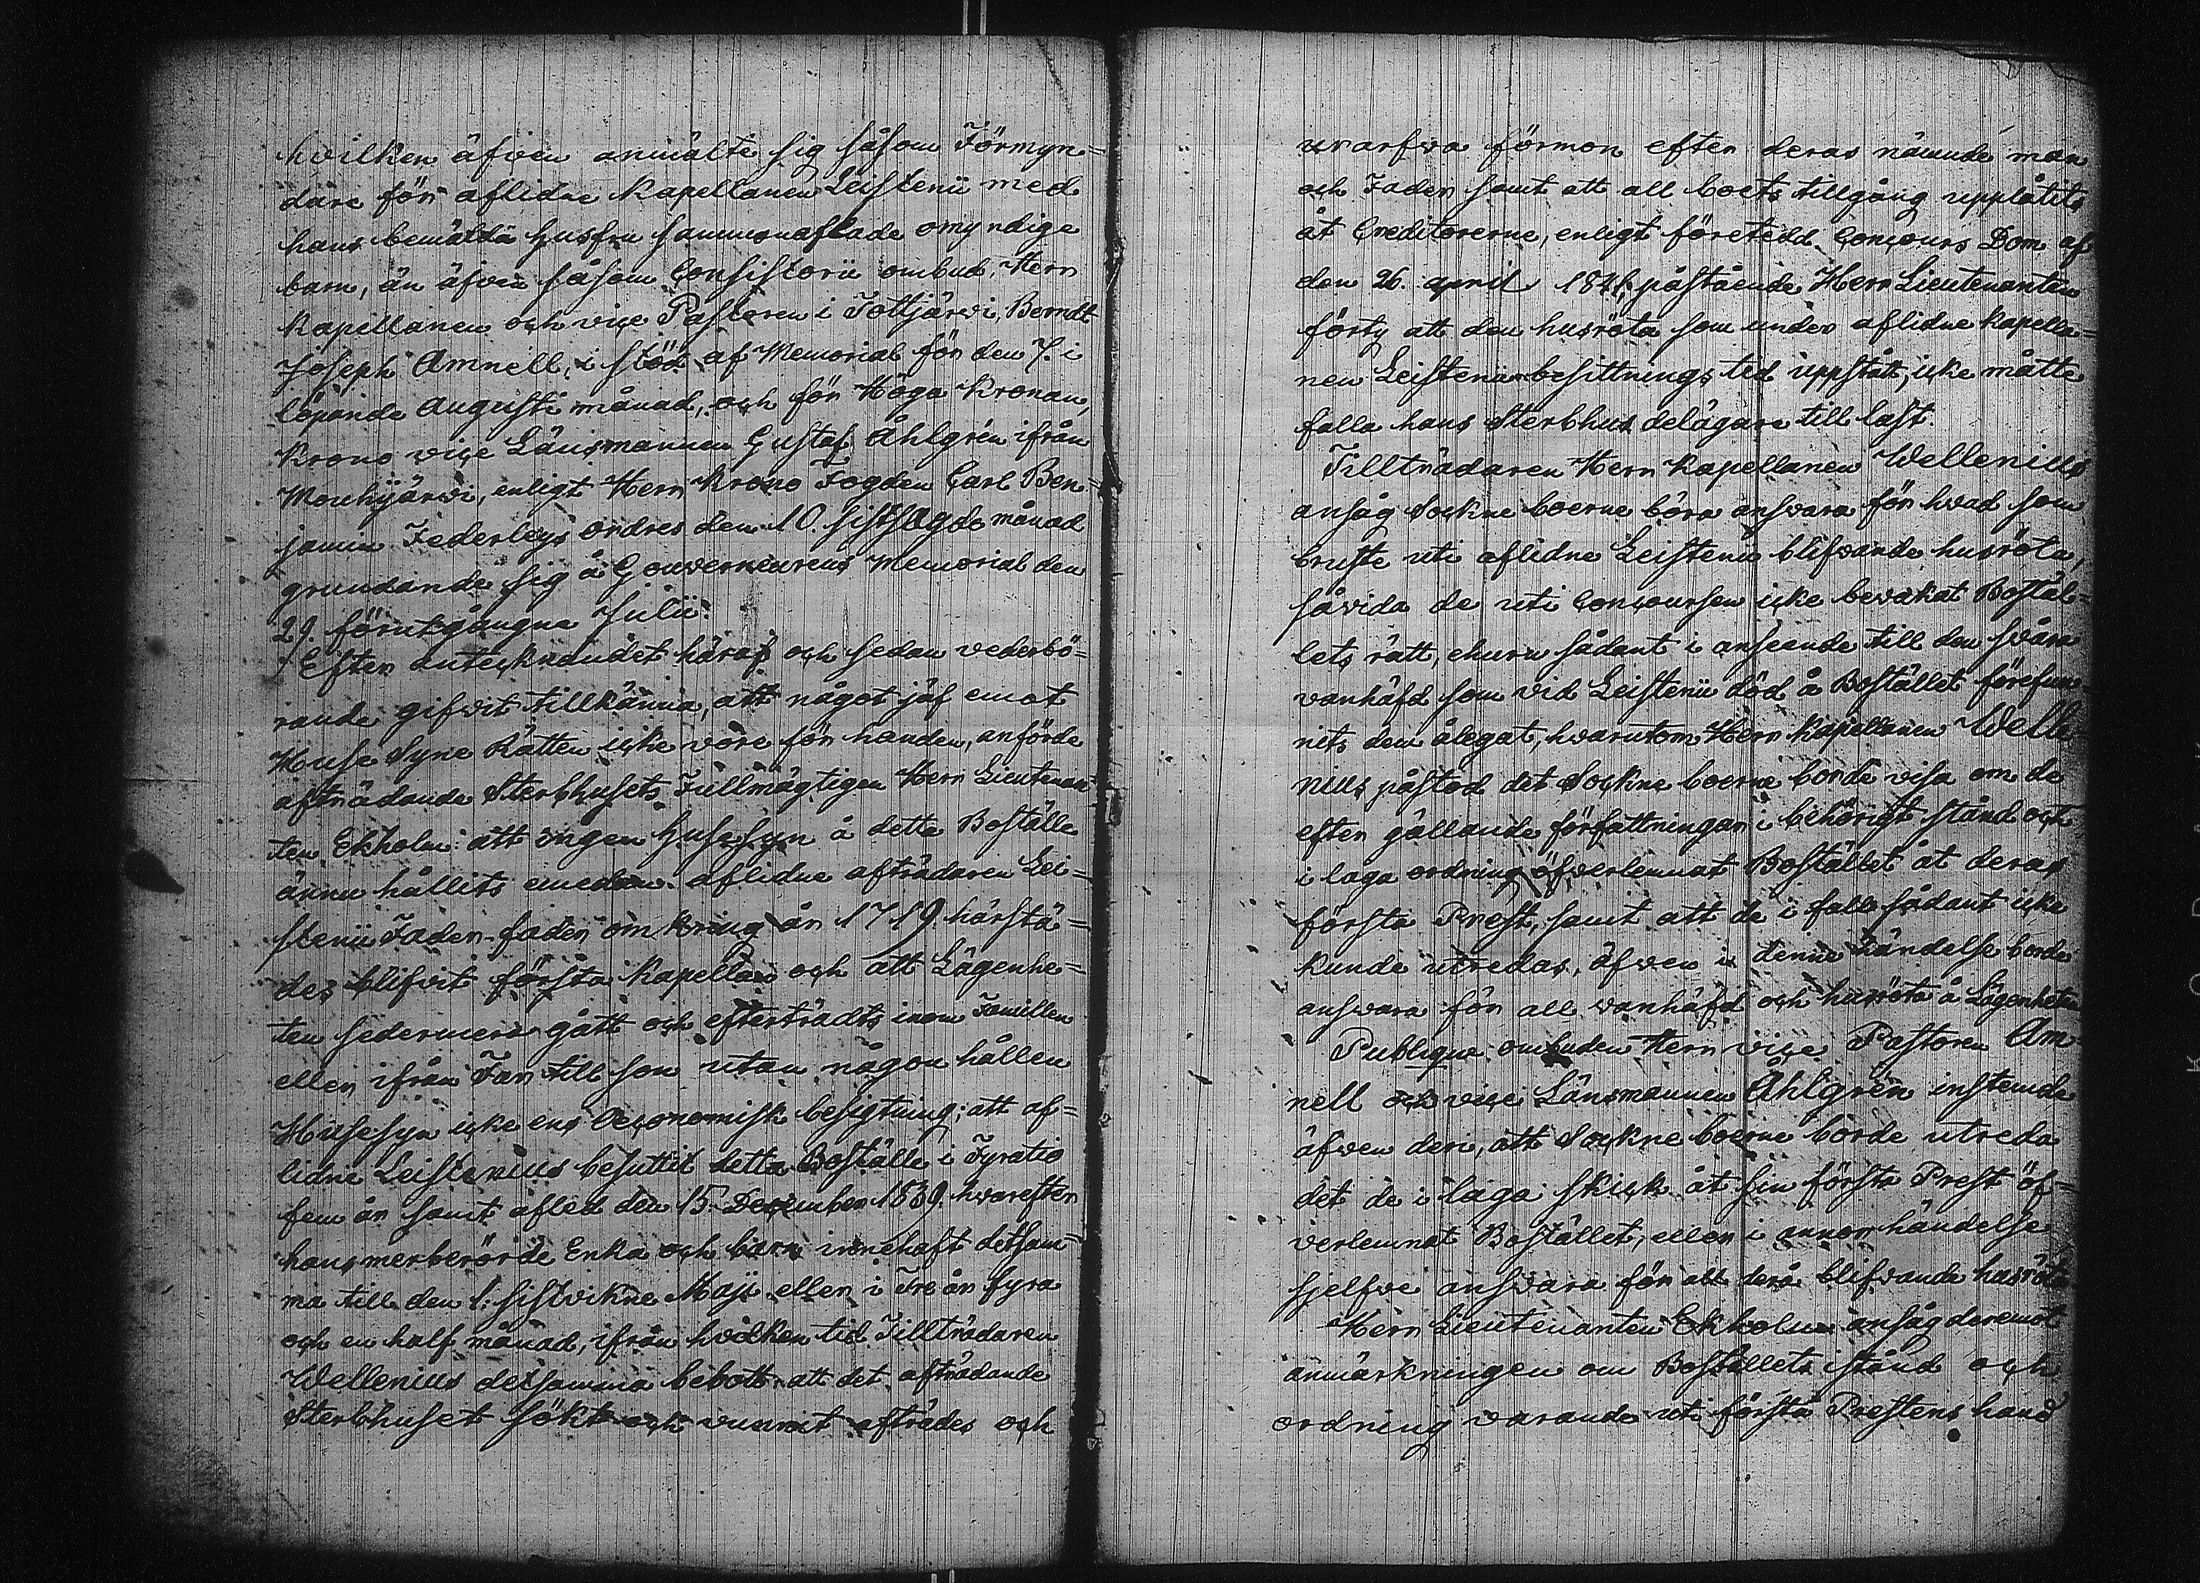 hvilken äfven anmälte sig såsom Förmyn=
dare för aflidne Kapellanen Leistenii med
hans bemälda Husfru sammanaflade omyndige
barn, än äfven såsom Consistorii ombud, Herr
Kapellanen och vice Pastoren i Tottjärvi, Berndt
Joseph Amnell, i stöd af Memorial för den 7. i
löpande Augusti månad, och för Höga Kronan,
Krono vice Länsmannen Gustaf Åhlgrén ifrån
Mouhijärvi, enligt Herr Krono Fogden Carl Ben=
jamin Federleys ordres den 10. sistsagde månad
grundande sig å Gouverneurens Memorial den
29. förutgångne Julii.
Efter antecknandet häraf och sedan vederbö=
rande gifvit tillkänna, att något jäf emot
Huse Syne Rätten icke vore för handen, anförde
afträdande Sterbhusets Fullmägtigen Herr Lieutenan
ten Ekholm: att ingen husesyn å detta Boställe
ännu hållits emedan aflidne afträdaren Lei=
stenii Fader-fader omkring år 1719. härstä=
des blifvit första Kapellan och att Lägenhe=
ten sedermera gått och efterträdts inom Famillen
eller ifrån Far till son utan någon hållen
Husesyn icke ens Oeconomisk besigtning; att af=
lidne Leistenius besuttit detta Boställe i Fyratio
fem år samt afled den 15. December 1839. hvarefter
hans merberörde Enka och barn innehaft detsam=
ma till den 1. sistvikne Maji eller i Tre år fyra
och en half månad, ifrån hvilken tid Tillträdaren
Wellenius detsamma bebott att det afträdande
Sterbhuset sökt och vunnit afträdes och
urarfva förmon efter deras nämnde man
och Fader samt att all boets tillgång upplåtits
åt Creditorerne, enligt företedd Concours Dom af
den 26. april 1841, påstående Herr Lieutenanten
förty att den husröta som under aflidne Kapella=
nen Leistenii besittnings tid uppstått, icke måtte
falla hans Sterbhus delägare till last.
Tillträdaren Herr Kapellanen Wellenius
ansåg Sockne boerne böra ansvara för hvad som
bruste uti aflidne Leistenii blifvande husröta,
såvida de uti Concoursen icke bevakat Bostäl=
lets rätt, ehuru sådant i anseende till den svåra
vanhäfd som vid Leistenii död å Bostället förefun=
nits dem ålegat, hvarutom Herr Kapellanen Welle
nius påstod det Sockne boerne borde visa om de
efter gällande författningar i behörigt stånd och
i laga ordning öfverlemnat Bostället åt deras
första Prest, samt att de i fall sådant icke
kunde utredas, äfven i denna händelse borde
ansvara för all vanhäfd och husröta å Lägenheten
Publique ombuden Herr vice Pastoren Am
nell och vice Länsmannen Åhlgrén instemde
äfven deri, att Sockne boerne borde utreda
det de i laga skick åt sin första Prest öf=
verlemnat Bostället, eller i annor händelse
sjelfve ansvara för all derå blifvande husröta
Herr Lieutenanten Ekholm ansåg deremot
anmärkningen om Bostället i stånd och
ordning varande uti första Prestens hand